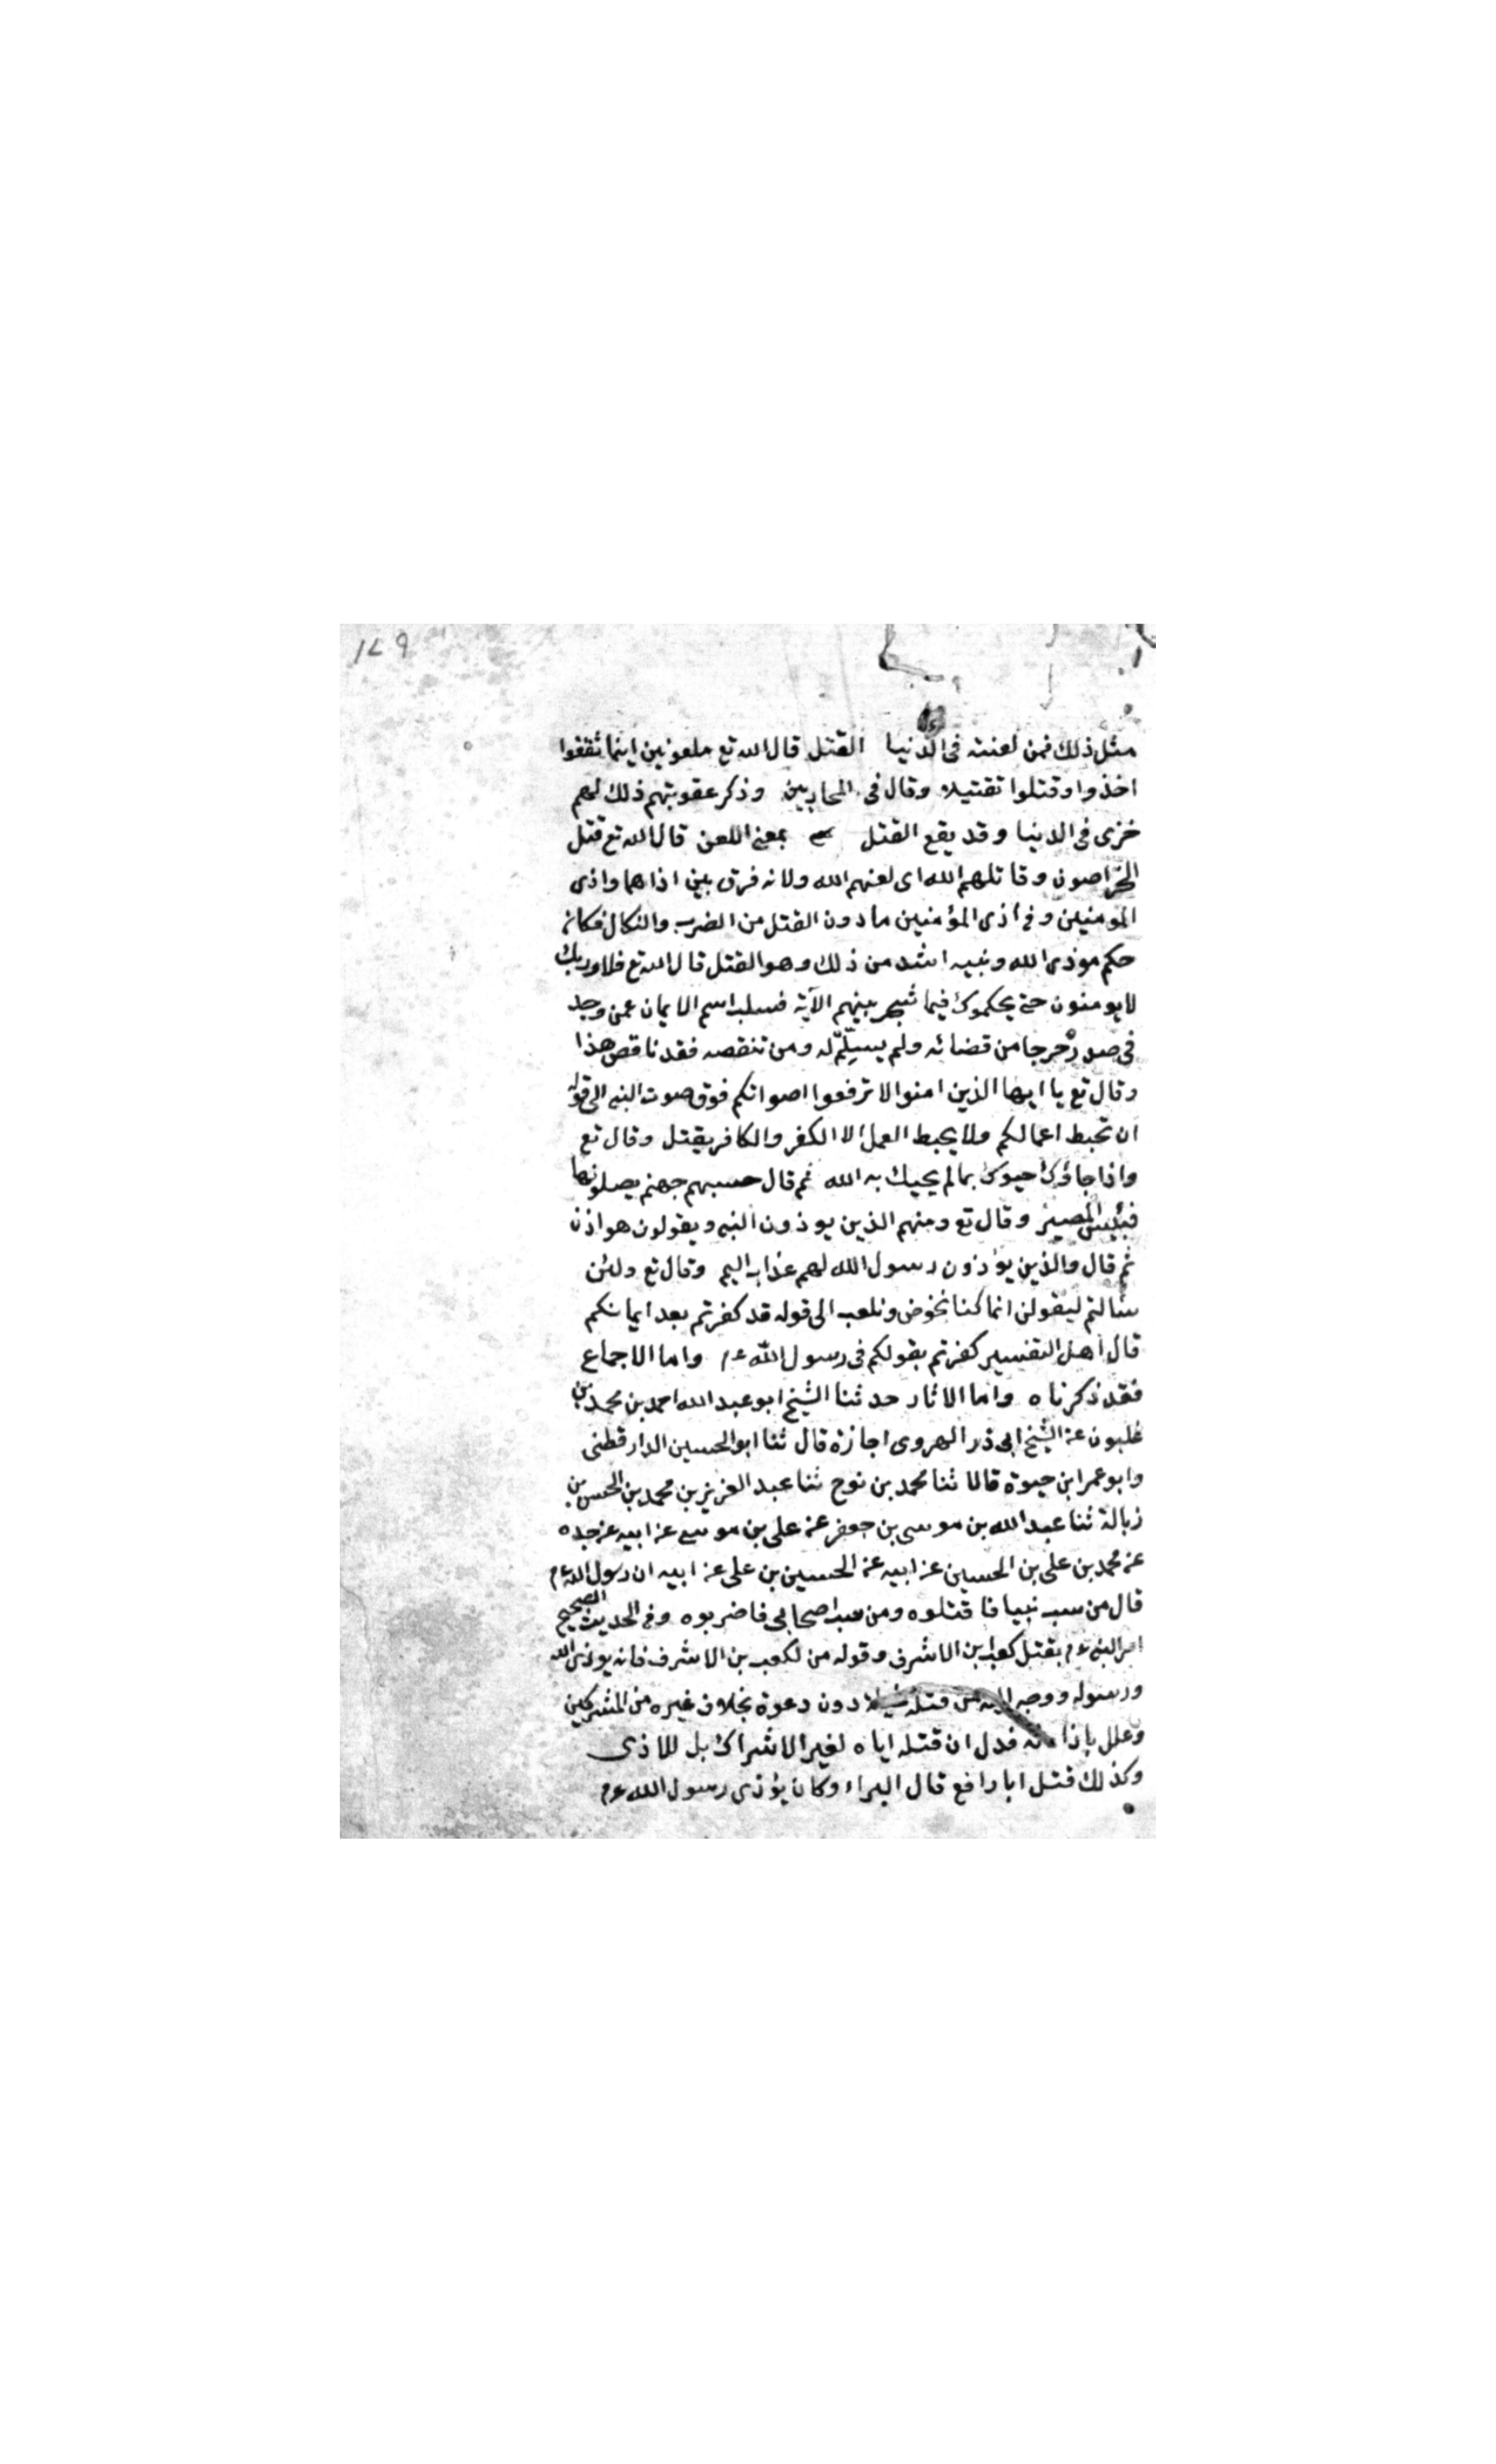 ١٧٩
مثل ذلك فمن لعنته فى الدنيا القتل قال الله تع ملعونين اينما ثقفوا
اخذوا وقتلوا تقتيلا وقال فى المحاربين وذكر عقوبتهم ذلك لهم
خزى فى الدنيا وقد يقع القتل بمعنى اللعن قال الله تع قتل
الخراصون وقاتلهم الله اى لعنهم الله ولانه فرق بين اذاهما واذى
المومنين وفى اذى المؤمنين ما دون القتل من الضرب والنكال فكان
حكم موذى الله ونبيه اشد من ذلك وهو القتل قال الله تع فلا وربك
لا يومنون حتى يحكموك فيما شجر بينهم الآية فسلب اسم الايمان عمن وجد
فى صدره حرجا من قضائه ولم يسلّم له ومن تنقصه فقد ناقض هذا
وقال تع يا ايها الذين امنوا لا ترفعوا اصواتكم فوق صوت النبى الى قوله
ان تحبط اعمالكم ولا يحبط العمل الا الكفر والكافر يقتل وقال تع
واذا جاؤك حيوك بما لم يحيك به الله ثم قال حسبهم جهنم يصلونها
فبئس المصير وقال تع ومنهم الذين يوذون النبى ويقولون هو اذن
ثم قال والذين يؤذون رسول الله لهم عذاب اليم وقال تع ولئن
سئالتم ليقولن انما كنا نخوض ونلعب الى قوله قد كفرتم بعد ايمانكم
قال اهل التفسير كفرتم بقولكم فى رسول الله عم واما الاجماع
فقد ذكرناه واما الاثار حدثنا الشيخ ابو عبد الله احمد بن محمد بن
غلبون عن الشيخ ابى ذر الهروى اجازة قال ثنا ابو الحسين الدارقطنى
وابو عمر ابن حيوة قالا ثنا محمد بن نوح ثنا عبد العزيز بن محمد بن الحسن بن
زبالة ثنا عبد الله بن موسى بن جعفر عن على بن موسى عن ابيه عن جده
عن محمد بن على بن الحسين عن ابيه عن الحسين بن على عن ابيه ان رسول الله عم
قال من سب نبيا فاقتلوه ومن سب اصحابى فاضربوه وفى الحديث الصحيح
امر النبى عم بقتل كعب بن الاشرف وقوله من لكعب بن الاشرف فانه يوذى الله
ورسوله ووجه اليه من قتله غيلة دون دعوة بخلاف غيره من المشركين
وعلل باذا نه فدل ان قتله اياه لغير الاشراك بل للاذى
وكذلك قتل ابا رافع قال البراء وكان يؤذى رسول الله عم